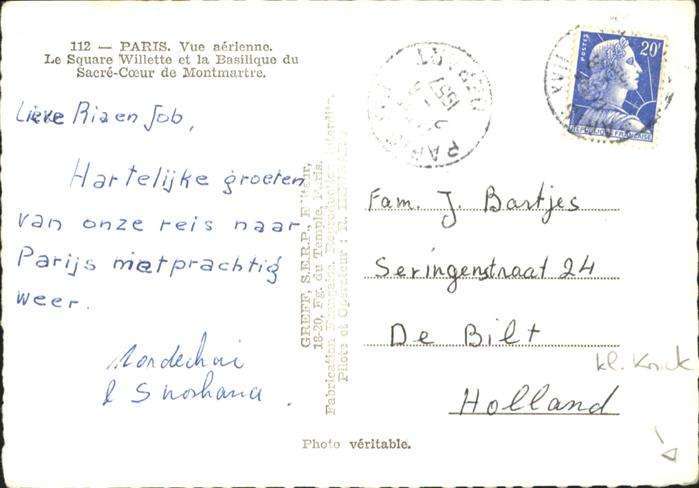 112 — PARIS. Vue aérienne.
Le Square Willette et la Basilique du
Sacré-Cœur de Montmartre.
Lieve Ria en Job,
Hartelijke groeten
van onze reis naar
Parijs met prachtig
weer.
Mordechai
& Shoshana.
GREFF, S.E.R.P., Editeur,
18-20, Fg. du Temple, Paris.
Fabrication Française. Reproduction interdite.
Pilote et Opérateur : R.
Photo véritable.
PARIS
DEPART
1957
POSTES
20F
REPUBLIQUE FRANÇAISE
Fam. J. Bartjes
Seringenstraat 24
De Bilt
Holland
kl. Knick